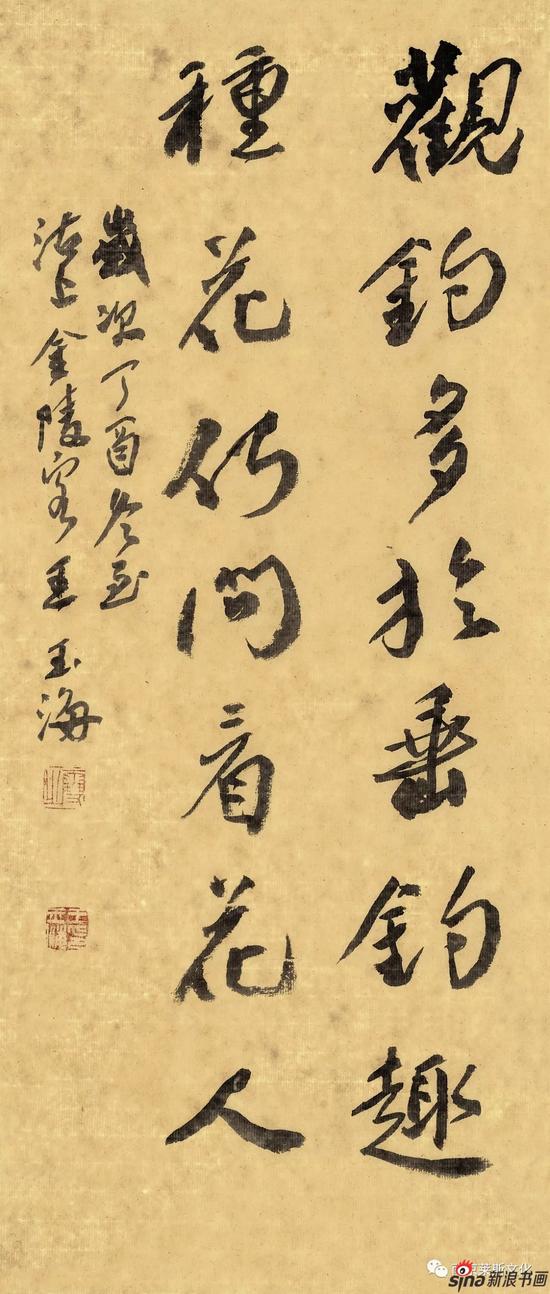 觀釣多於垂釣趣
種花何問看花人
歲次丁酉冬至
沽上金陵客王玉海
sina新浪书画